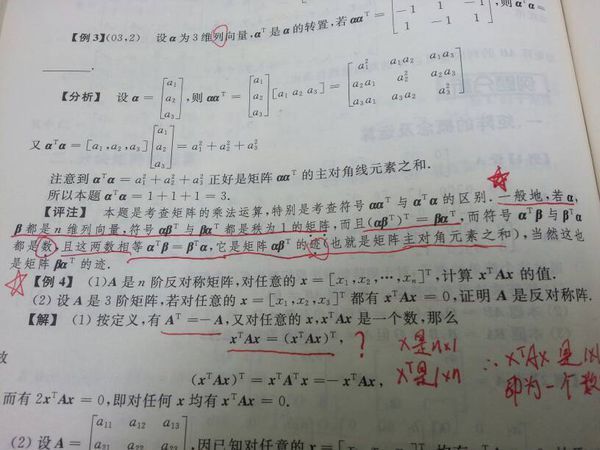 【例3】(03,2) 设α为3维列向量,αᵀ是α的转置,若ααᵀ= [ -1 1 -1 ; 1 -1 1 ] ,则αᵀα=
.
【分析】 设α=[a₁ ; a₂ ; a₃],则ααᵀ=[a₁ ; a₂ ; a₃][a₁ a₂ a₃]=[a₁² a₁a₂ a₁a₃ ; a₂a₁ a₂² a₂a₃ ; a₃a₁ a₃a₂ a₃²]
又αᵀα=[a₁,a₂,a₃][a₁ ; a₂ ; a₃]=a₁²+a₂²+a₃²
注意到αᵀα=a₁²+a₂²+a₃²正好是矩阵ααᵀ的主对角线元素之和.
所以本题αᵀα=1+1+1=3.
【评注】 本题是考查矩阵的乘法运算,特别是考查符号ααᵀ与αᵀα的区别.一般地,若α,
β都是n维列向量,符号αβᵀ与βαᵀ都是秩为1的矩阵,而且(αβᵀ)ᵀ=βαᵀ,而符号αᵀβ与βᵀα
都是数,且这两数相等αᵀβ=βᵀα,它是矩阵αβᵀ的迹(也就是矩阵主对角元素之和),当然这也
是矩阵βαᵀ的迹.
【例4】 (1)A是n阶反对称矩阵,对任意的x=[x₁,x₂,…,xₙ]ᵀ,计算xᵀAx的值.
(2)设A是3阶矩阵,若对任意的x=[x₁,x₂,x₃]ᵀ都有xᵀAx=0,证明A是反对称阵.
【解】 (1)按定义,有Aᵀ=-A,又对任意的x,xᵀAx是一个数,那么
xᵀAx=(xᵀAx)ᵀ, ?
x是n×1
xᵀ是1×n
∴xᵀAx是1×1
即为一个数
(xᵀAx)ᵀ=xᵀAᵀx=-xᵀAx,
而有2xᵀAx=0,即对任何x均有xᵀAx=0.
(2)设A=[a₁₁ a₁₂ a₁₃ ; a₂₁ a₂₂ a₂₃],因已知对任意的